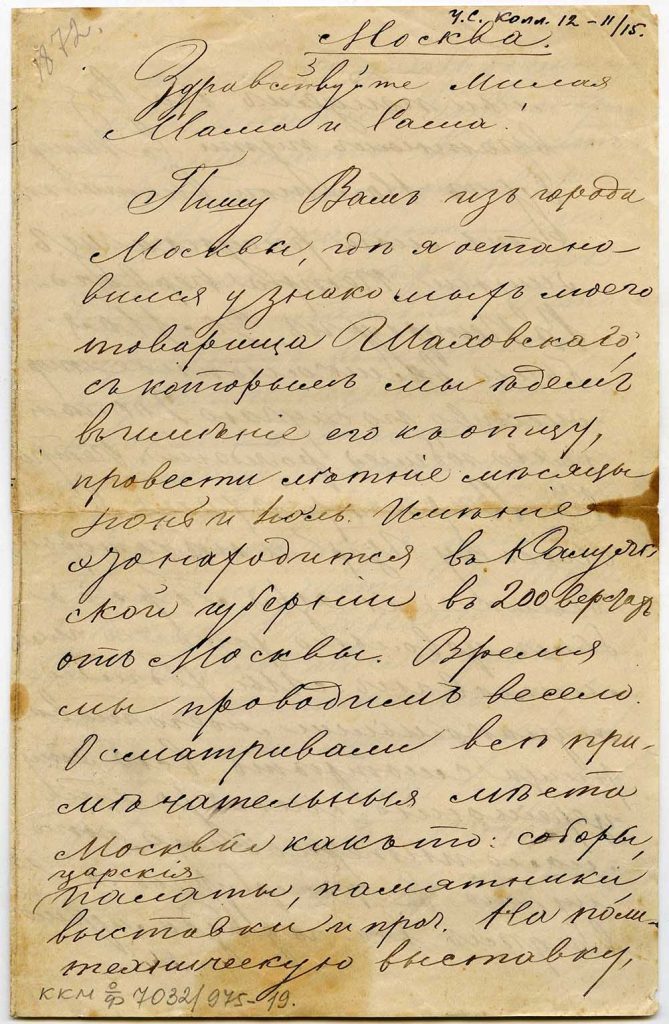 1872.
У.С. Колл. 12-11/15.
Москва.
Здравствуйте милая
Мама и Саша!
Пишу Вамъ изъ города
Москвы, гдѣ я остано-
вился у знакомыхъ моего
товарища Шаховскаго,
съ которымъ мы ѣдемъ
въ имѣніе его къ отцу,
провести лѣтніе мѣсяцы
Іюнь и Іюль. Имѣніе
находится въ Калужс-
ской губерніи въ 200 верстахъ
отъ Москвы. Время
мы проводимъ весело.
Осматривали всѣ при-
мѣчательныя мѣста
Москвы какъ то: соборы,
царскія
палаты, памятники,
выставки и проч. На поли-
техническую выставку,
ККМ ОФ 7032/975-19.